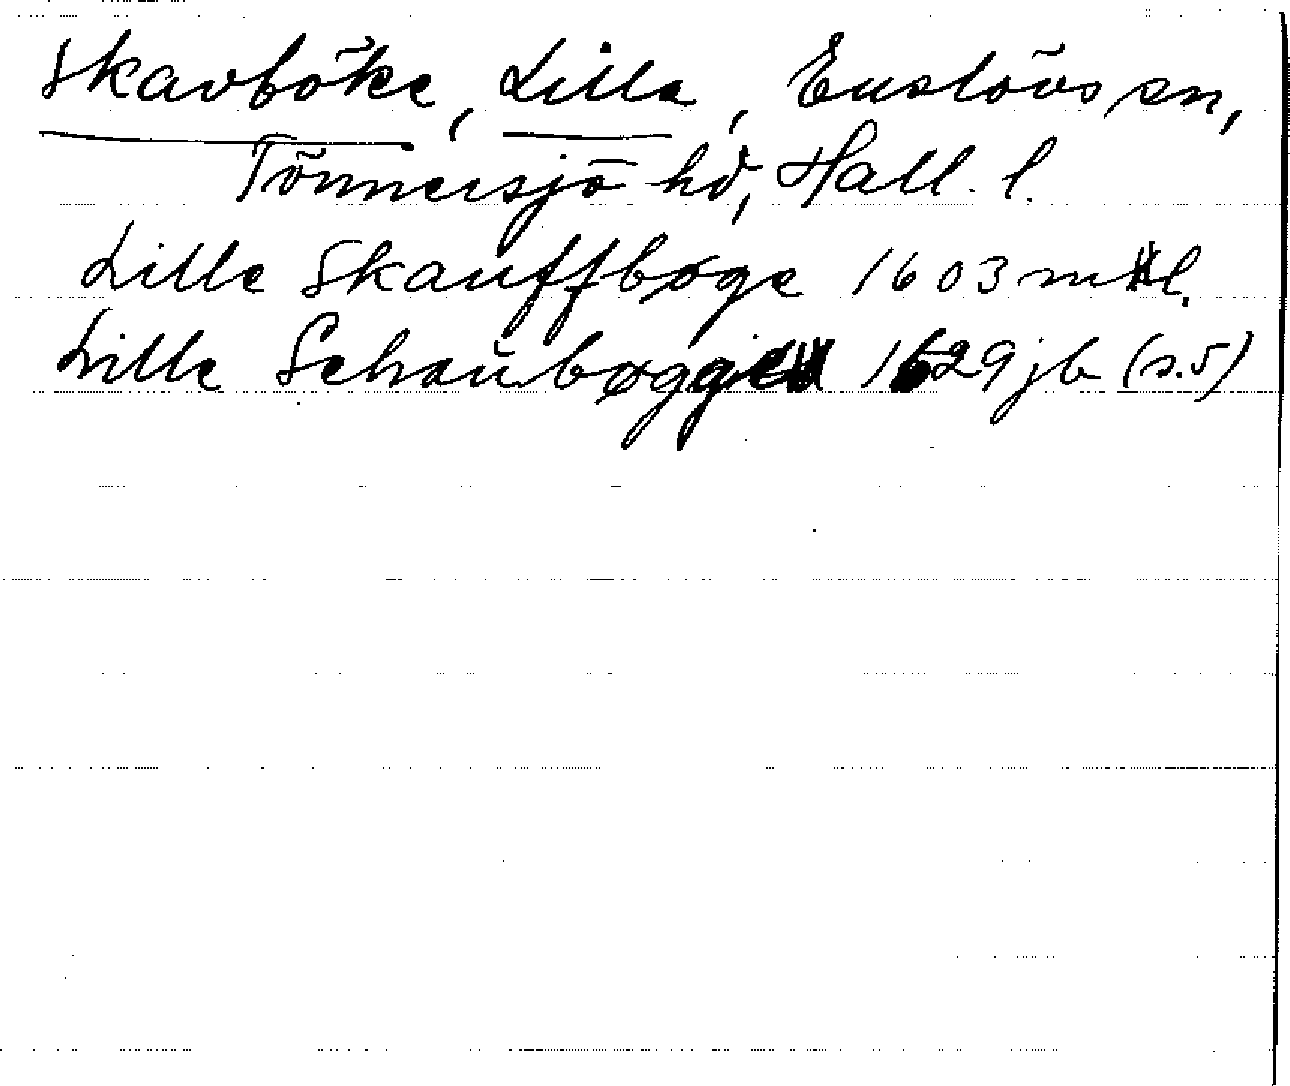 Skavböke, Lilla, Enslövs sn,
Tönnersjö hd, Hall. l.
Lille Skauffbøge 1603 mtl.
Lille Schaubøgge 1629 jb (s.5)